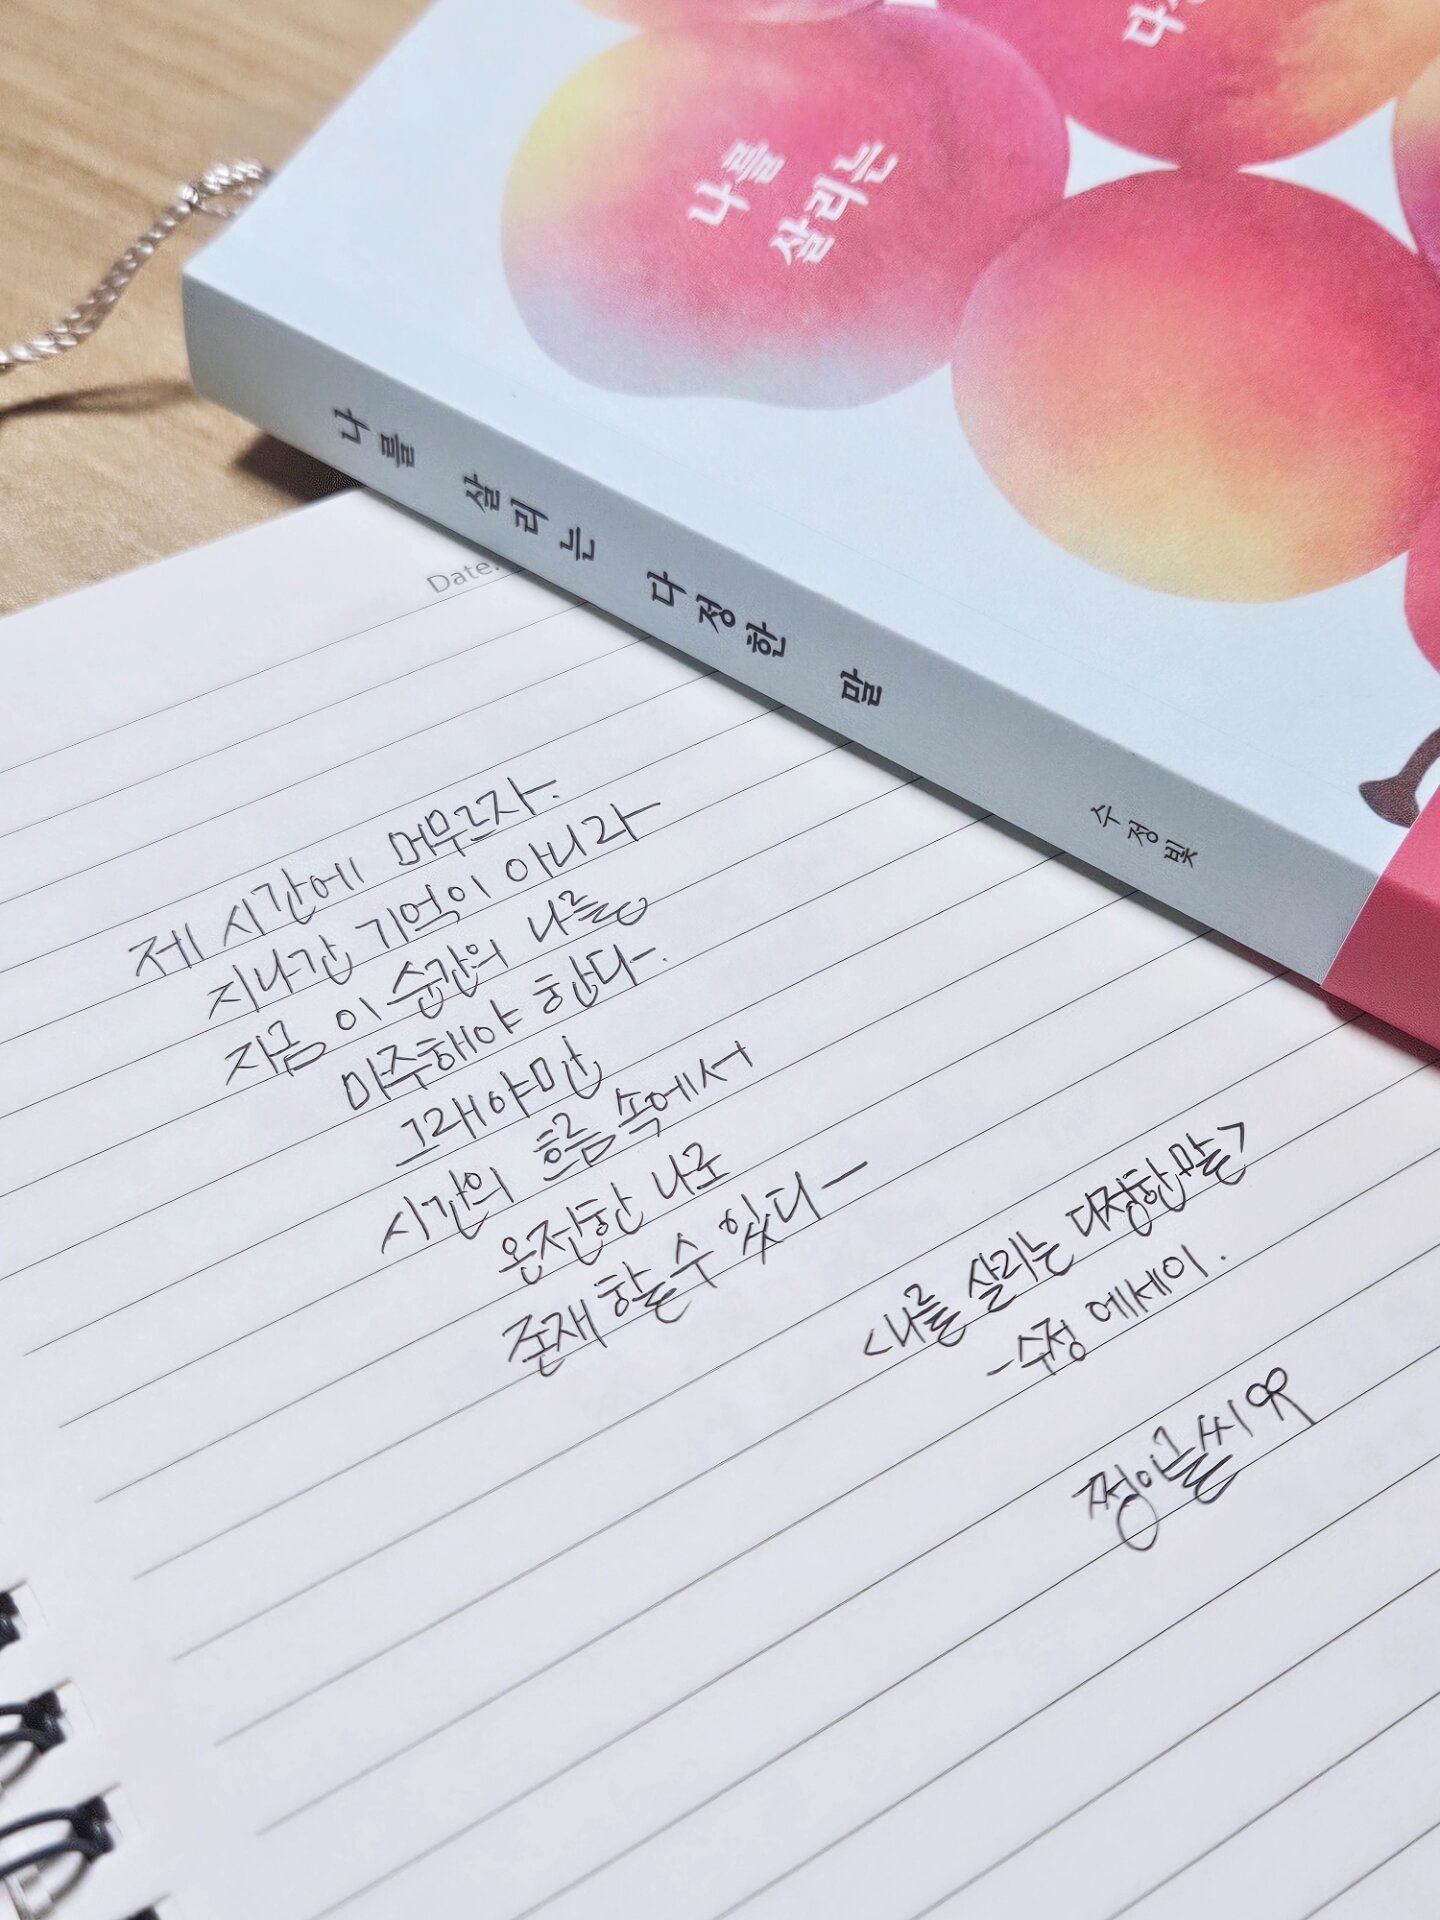 다정
나를
살리는
나를 살리는 다정한 말
수정빛
Date.
제 시간에 머무르자.
지나간 기억이 아니라
지금 이 순간의 나를
마주해야 한다.
그래야만
시간의 흐름 속에서
온전한 나로
존재할 수 있다-
<나를 살리는 다정한 말>
-수정 에세이.
쩡이글씨